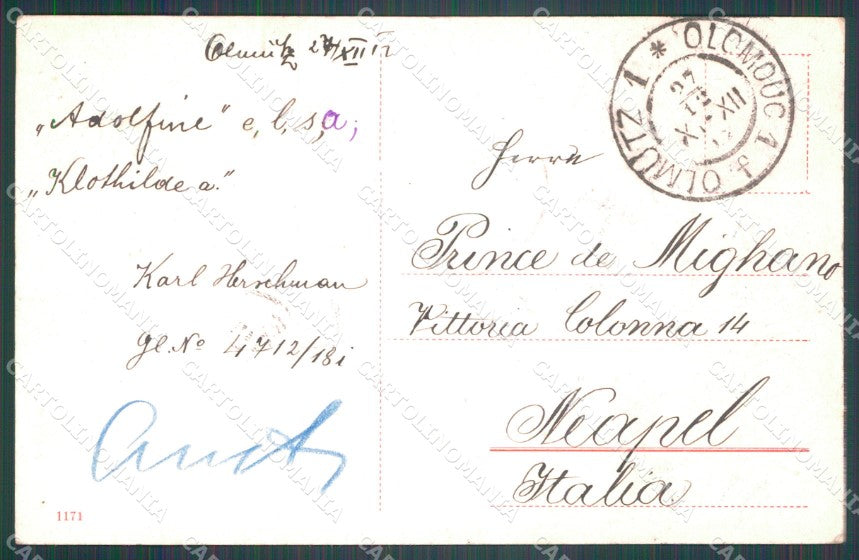 Olmütz 27/XII 12
„Adolfine" e, l, s, a;
„Klothilde a."
Karl Herschman
gl. No 4712/18i
Herrn
Prince de Mighano
Vittoria Colonna 14
Neapel
Italia
OLMÜTZ 1 * OLOMOUC 1
27
XII
1171
CARTOLINOMANIA